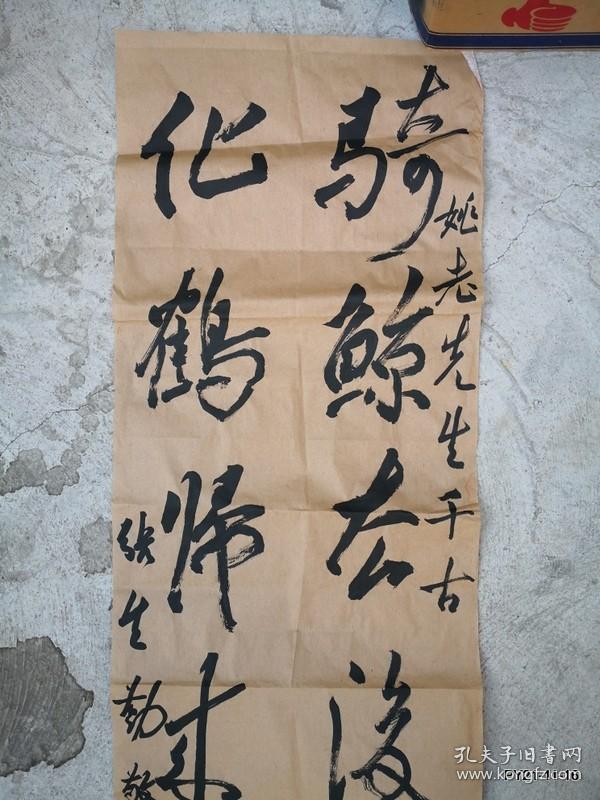 姚老先生千古
骑鲸去后
化鹤归来
张生勤敬
孔夫子旧书网
www.kongfz.com